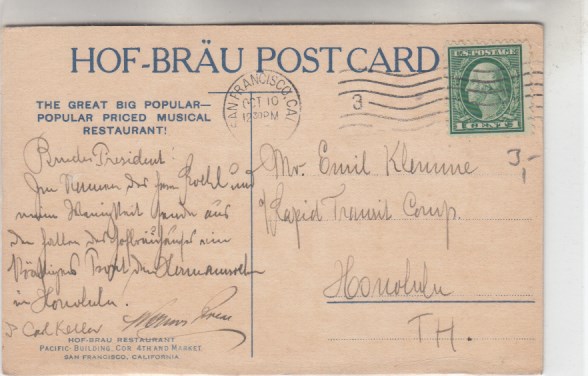 HOF-BRÄU POST CARD
THE GREAT BIG POPULAR—
POPULAR PRICED MUSICAL
RESTAURANT!
SAN FRANCISCO, CAL
OCT 10
12 30 PM
3
U.S. POSTAGE
1 CENT
3,-
Bruder Präsident!
Im Namen der und
meine Wenigkeit sende aus
den Hallen des Hofbräuhauses ein
kräftiges den
in Honolulu.
Carl Keller
Mr. Emil Klemme
℅ Rapid Transit Comp.
Honolulu
T.H.
HOF-BRÄU RESTAURANT
PACIFIC BUILDING, COR. 4TH AND MARKET
SAN FRANCISCO, CALIFORNIA